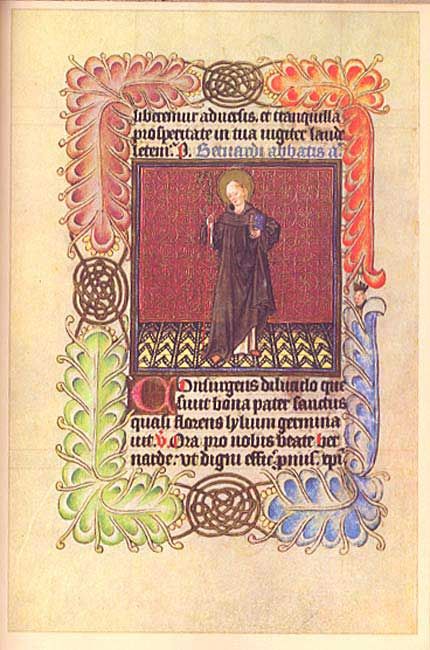 liberemur aduersis, et tranquilla
prosperitate in tua iugiter laude
letem̃. Bernardi abbatis añ
Consurgens diluculo que
siuit bona pater sanctus
quasi florens lylium germina
uit. V. Ora pro nobis beate ber
narde. Vt digni effic̃. p̃mis. xp̃i